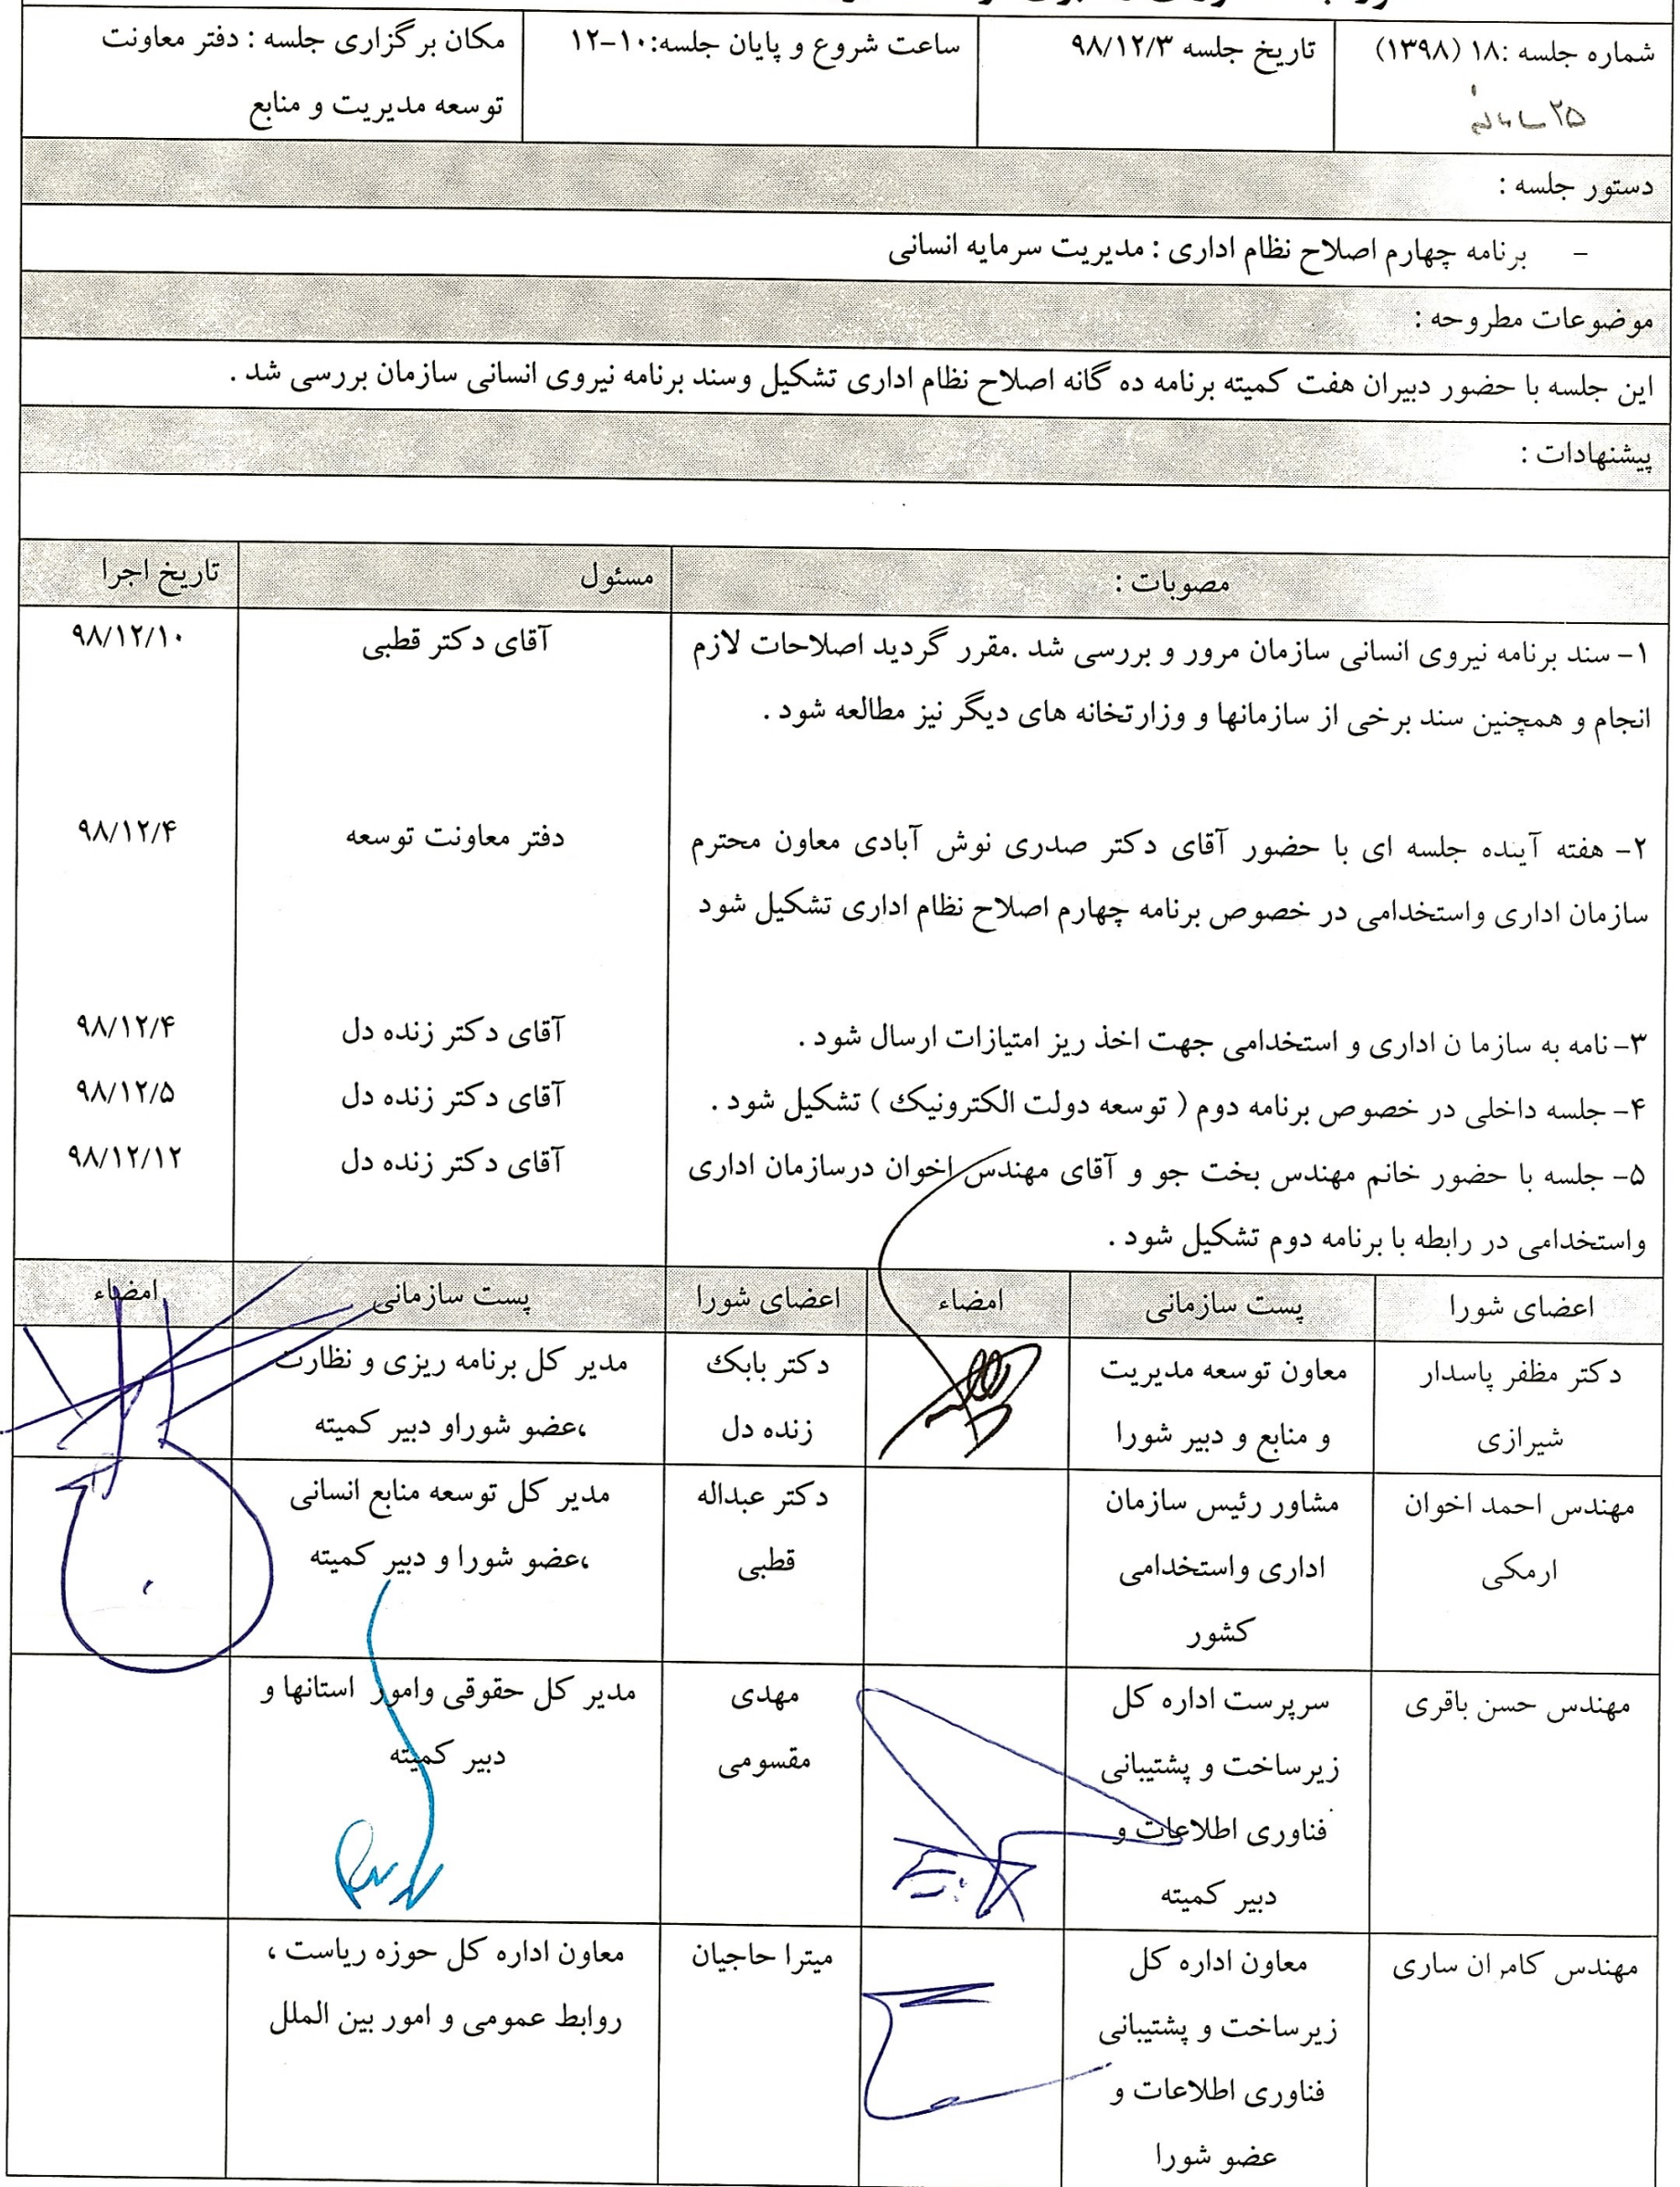 شماره جلسه :۱۸ (۱۳۹۸)
تاریخ جلسه ۹۸/۱۲/۳
ساعت شروع و پایان جلسه:۱۰-۱۲
مکان برگزاری جلسه : دفتر معاونت
توسعه مدیریت و منابع
۲۵
دستور جلسه :
- برنامه چهارم اصلاح نظام اداری : مدیریت سرمایه انسانی
موضوعات مطروحه :
این جلسه با حضور دبیران هفت کمیته برنامه ده گانه اصلاح نظام اداری تشکیل وسند برنامه نیروی انسانی سازمان بررسی شد .
پیشنهادات :
مصوبات :
مسئول
تاریخ اجرا
۱- سند برنامه نیروی انسانی سازمان مرور و بررسی شد .مقرر گردید اصلاحات لازم
انجام و همچنین سند برخی از سازمانها و وزارتخانه های دیگر نیز مطالعه شود .
آقای دکتر قطبی
۹۸/۱۲/۱۰
۲- هفته آینده جلسه ای با حضور آقای دکتر صدری نوش آبادی معاون محترم
سازمان اداری واستخدامی در خصوص برنامه چهارم اصلاح نظام اداری تشکیل شود
دفتر معاونت توسعه
۹۸/۱۲/۴
۳- نامه به سازما ن اداری و استخدامی جهت اخذ ریز امتیازات ارسال شود .
آقای دکتر زنده دل
۹۸/۱۲/۴
۴- جلسه داخلی در خصوص برنامه دوم ( توسعه دولت الکترونیک ) تشکیل شود .
آقای دکتر زنده دل
۹۸/۱۲/۵
۵- جلسه با حضور خانم مهندس بخت جو و آقای مهندس اخوان درسازمان اداری
واستخدامی در رابطه با برنامه دوم تشکیل شود .
آقای دکتر زنده دل
۹۸/۱۲/۱۲
اعضای شورا
پست سازمانی
امضاء
اعضای شورا
پست سازمانی
امضاء
دکتر مظفر پاسدار
شیرازی
معاون توسعه مدیریت
و منابع و دبیر شورا
دکتر بابک
زنده دل
مدیر کل برنامه ریزی و نظارت
،عضو شوراو دبیر کمیته
مهندس احمد اخوان
ارمکی
مشاور رئیس سازمان
اداری واستخدامی
کشور
دکتر عبداله
قطبی
مدیر کل توسعه منابع انسانی
،عضو شورا و دبیر کمیته
مهندس حسن باقری
سرپرست اداره کل
زیرساخت و پشتیبانی
فناوری اطلاعات و
دبیر کمیته
مهدی
مقسومی
مدیر کل حقوقی وامور استانها و
دبیر کمیته
مهندس کامران ساری
معاون اداره کل
زیرساخت و پشتیبانی
فناوری اطلاعات و
عضو شورا
میترا حاجیان
معاون اداره کل حوزه ریاست ،
روابط عمومی و امور بین الملل